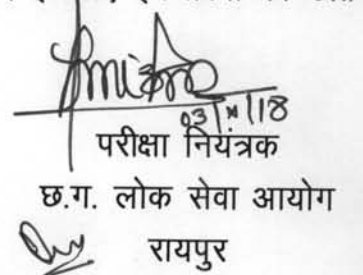 03/X/18
परीक्षा नियंत्रक
छ.ग. लोक सेवा आयोग
रायपुर